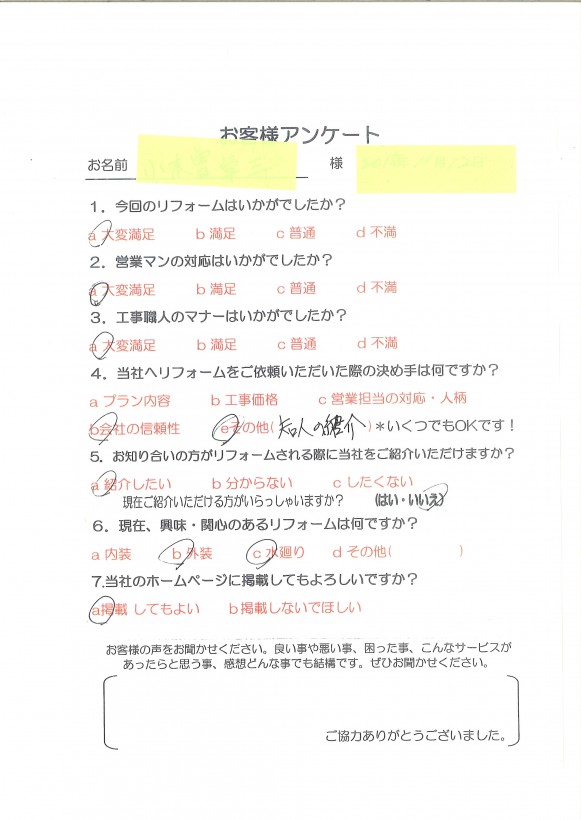 お客様アンケート
お名前 様
1．今回のリフォームはいかがでしたか？
a 大変満足 b 満足 c 普通 d 不満
2．営業マンの対応はいかがでしたか？
a 大変満足 b 満足 c 普通 d 不満
3．工事職人のマナーはいかがでしたか？
a 大変満足 b 満足 c 普通 d 不満
4．当社へリフォームをご依頼いただいた際の決め手は何ですか？
a プラン内容 b 工事価格 c 営業担当の対応・人柄
b会社の信頼性 eその他( 知人の紹介 )＊いくつでもOKです！
5．お知り合いの方がリフォームされる際に当社をご紹介いただけますか？
a 紹介したい b 分からない c したくない
現在ご紹介いただける方がいらっしゃいますか？ (はい・いいえ)
6．現在、興味・関心のあるリフォームは何ですか？
a 内装 b 外装 c 水廻り d その他( )
7.当社のホームページに掲載してもよろしいですか？
a掲載 してもよい b掲載しないでほしい
お客様の声をお聞かせください。良い事や悪い事、困った事、こんなサービスが
あったらと思う事、感想どんな事でも結構です。ぜひお聞かせください。
ご協力ありがとうございました。